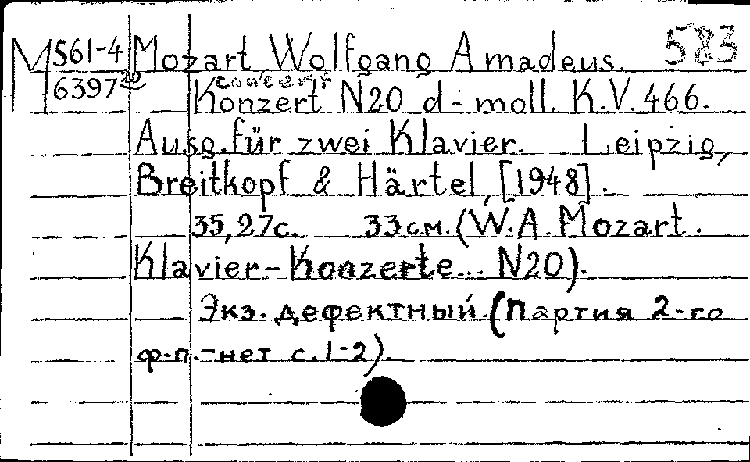 М 561-4 Mozart Wolfgang Amadeus. 583
6397 concert
Konzert N20 d-moll. K.V. 466.
Ausg. für zwei Klavier. Leipzig,
Breitkopf & Härtel, [1948].
35,27с. 33см. (W.A. Mozart.
Klavier-Konzerte... N20).
Экз. дефектный (Партия 2-го
ф-п.-нет с. 1-2).